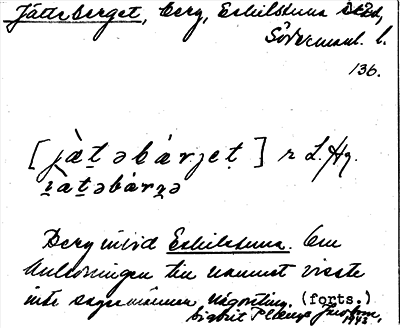 Jätteberget, berg, Eskilstuna
Södermanl. l.
136.
[jàt̠əbárjet] r L. Hg.
i̯àt̠əbárjə
Berg invid Eskilstuna. Om
Anledningen till namnet visste
inte sagesmännen någonting. (forts.)
Sigbrit 1943